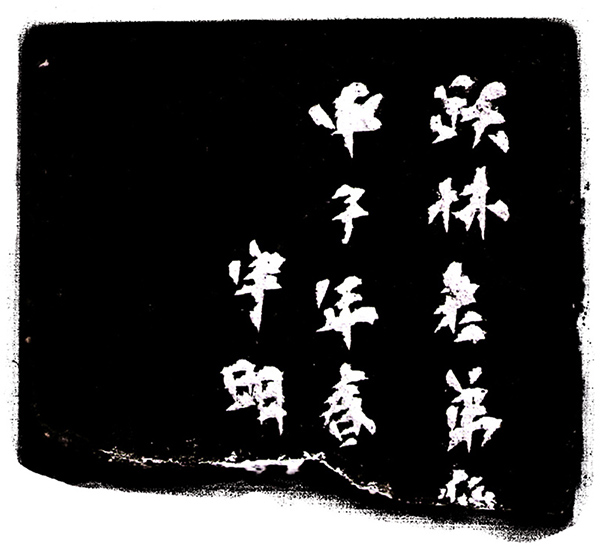 跃林老弟
甲子年春
宇明